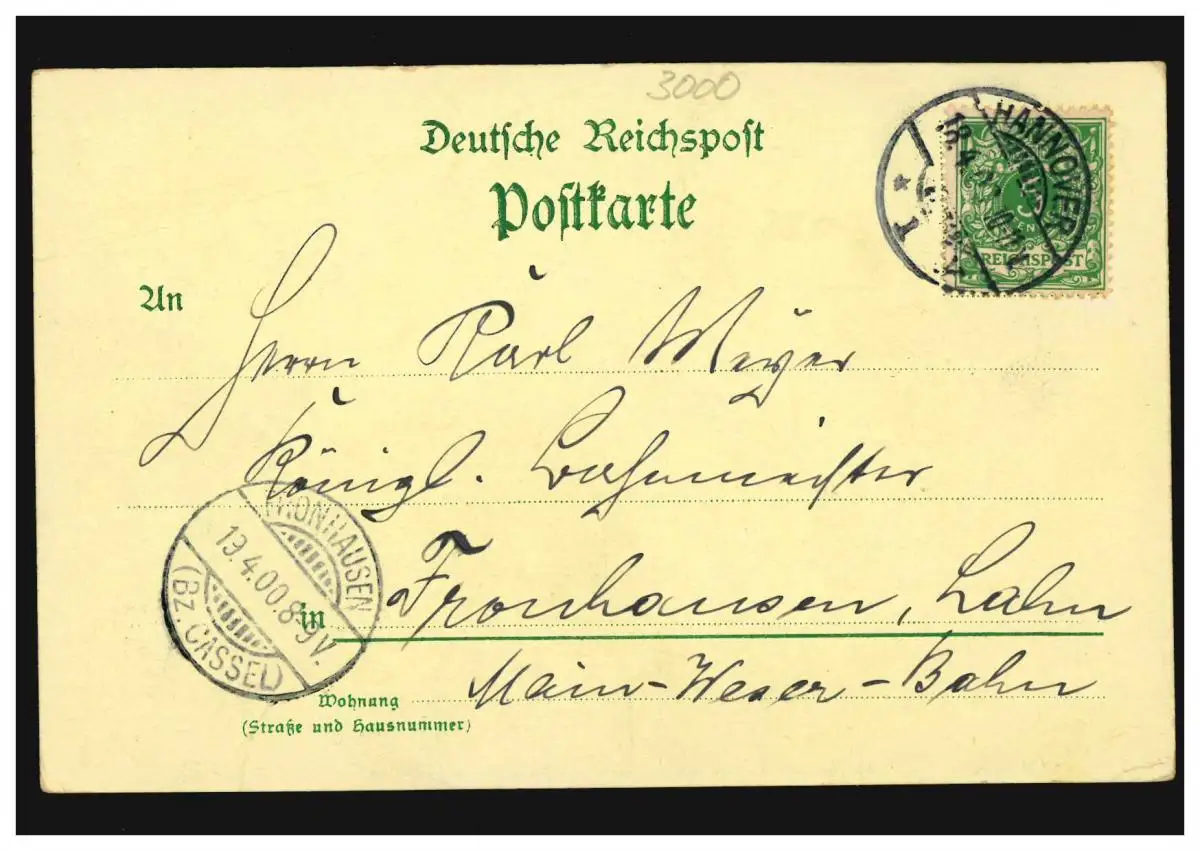 3000
Deutsche Reichspost
Postkarte
HANNOVER
1
REICHSPOST
An
Herrn Karl Meyer
Königl. Bahnmeister
FRONHAUSEN
19.4.00.8-9V.
(Bz. CASSEL)
in Fronhausen, Lahn
Main-Weser-Bahn
Wohnung
(Straße und Hausnummer)